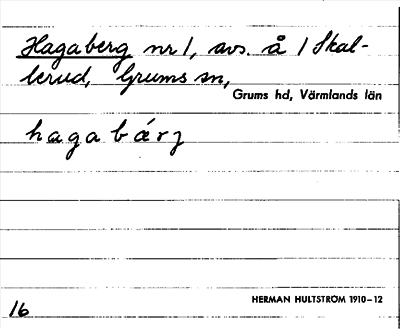 Hagaberg nr 1, avs. å 1 Skal-
lerud, Grums sn,
Grums hd, Värmlands län
h a g a b á r j
HERMAN HULTSTRÖM 1910–12
16